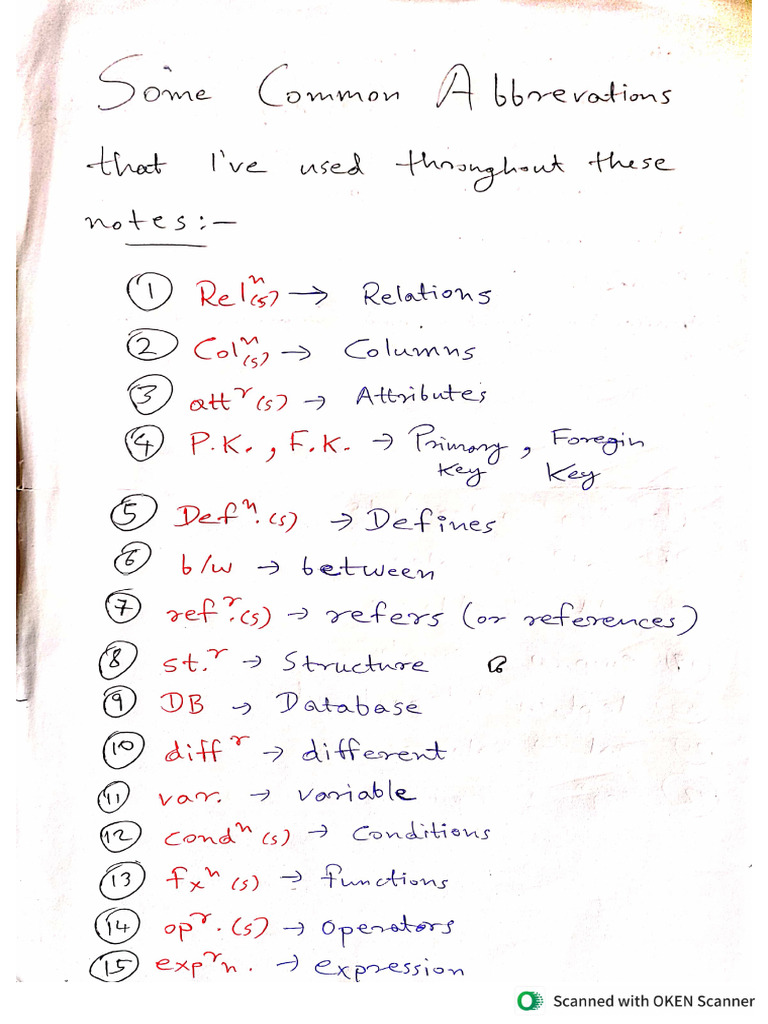 Some Common Abbrevations
that I've used throughout these
notes:-
① Rel^n(s) → Relations
② Col^n(s) → Columns
③ att^r(s) → Attributes
④ P.K., F.K. → Primary Key, Foregin Key
⑤ Def^n.(s) → Defines
⑥ b/w → between
⑦ ref^r.(s) → refers (or references)
⑧ st.^r → Structure
⑨ DB → Database
⑩ diff^r → different
⑪ var. → variable
⑫ cond^n(s) → Conditions
⑬ fx^n(s) → functions
⑭ op^r.(s) → Operators
⑮ exp^rn. → expression
Scanned with OKEN Scanner